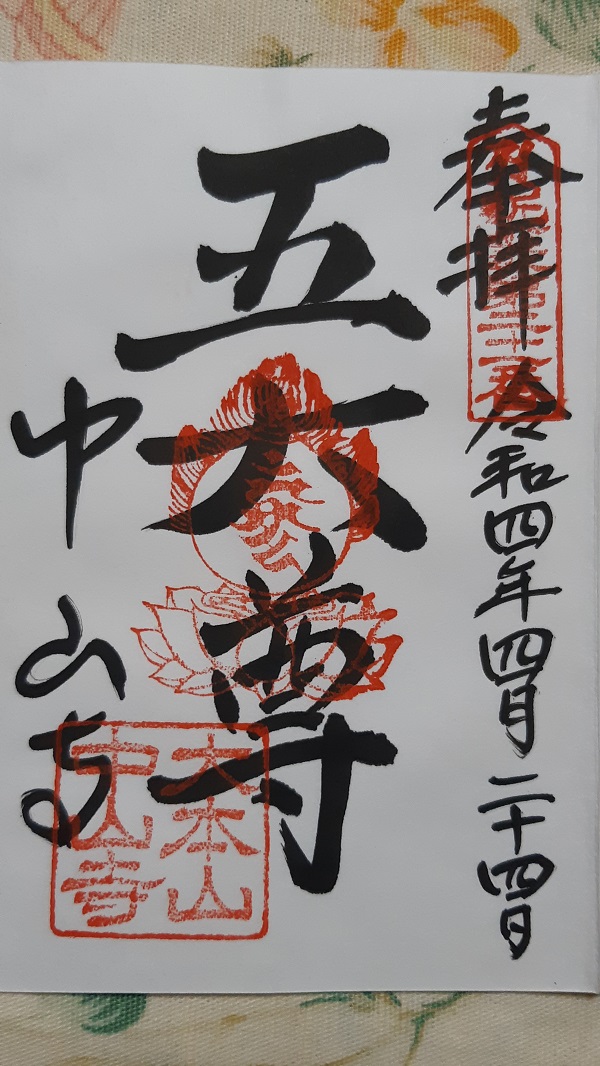 奉拝 令和四年四月二十四日
五大尊
中山寺
大本山
中山寺